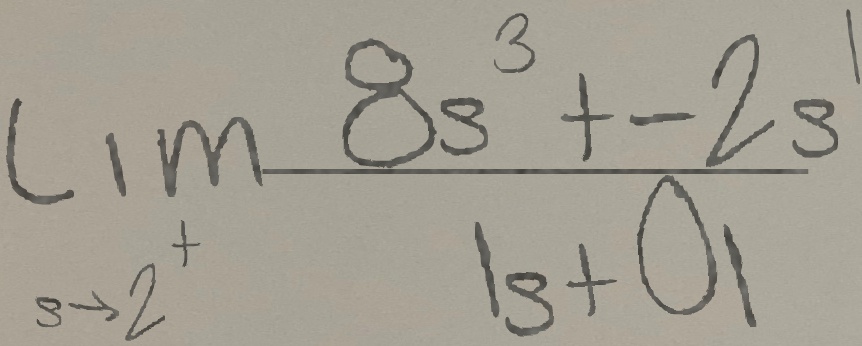 \lim_{s \to 2^+} \frac{8s^3 + -2s^1}{|s+0|}